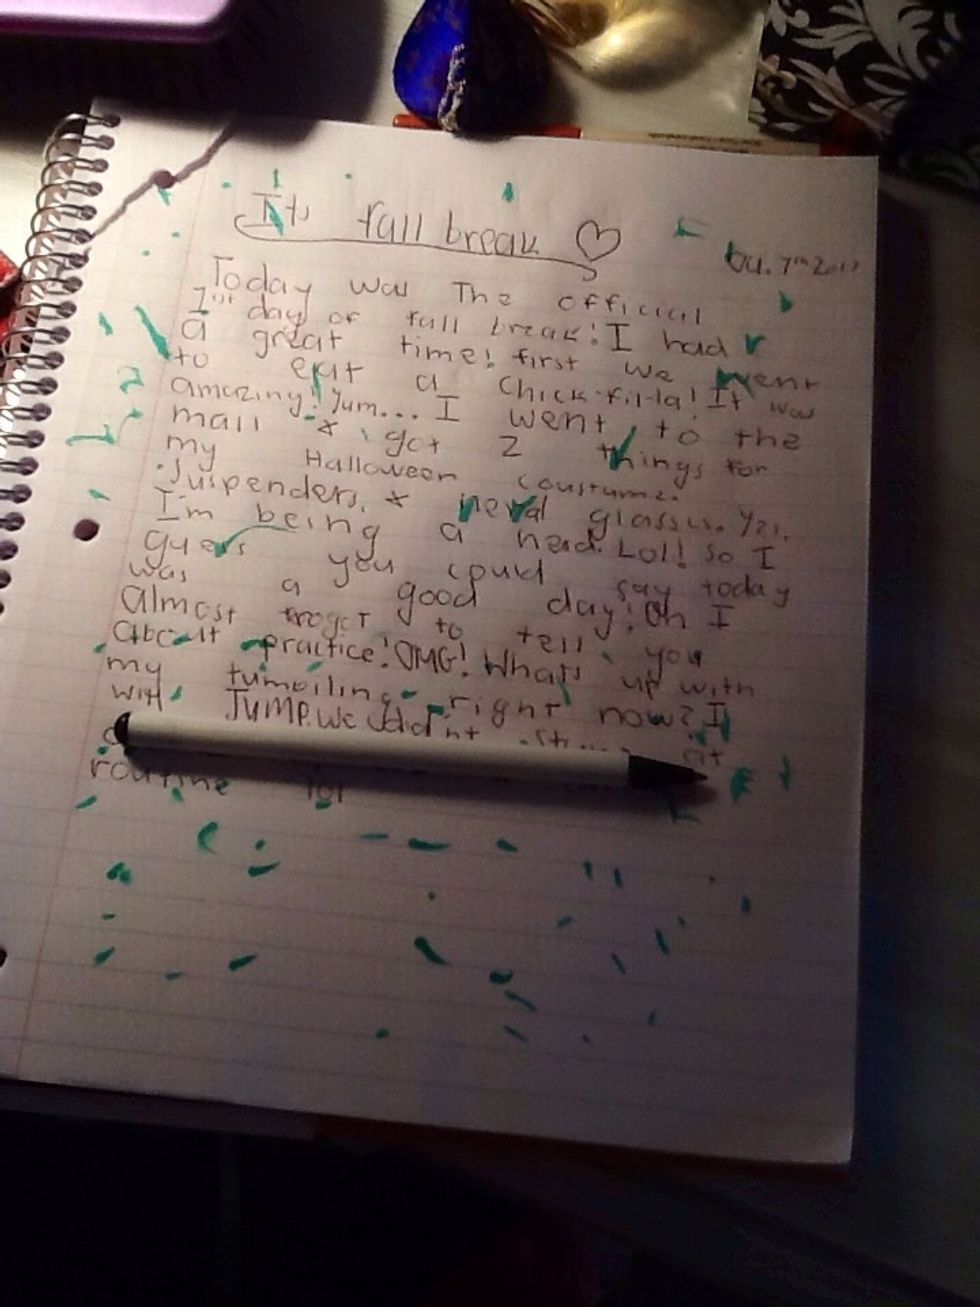 Its fall break ♡
Oct. 7th 2017
Today was The official
1st day of fall break! I had
a great time! first we went
to eat a Chick-fil-la! It was
amazing! Yum... I went to the
mall & got 2 things for
my Halloween
suspenders, & nerd glasses. Yes,
I'm being a nerd. Lol! so I
guess you could say today
was a good day! Oh I
almost froget to tell you
about practice! OMG! Whats up with
my tumbiling right now? I
will Jump. We didnt
routine lol